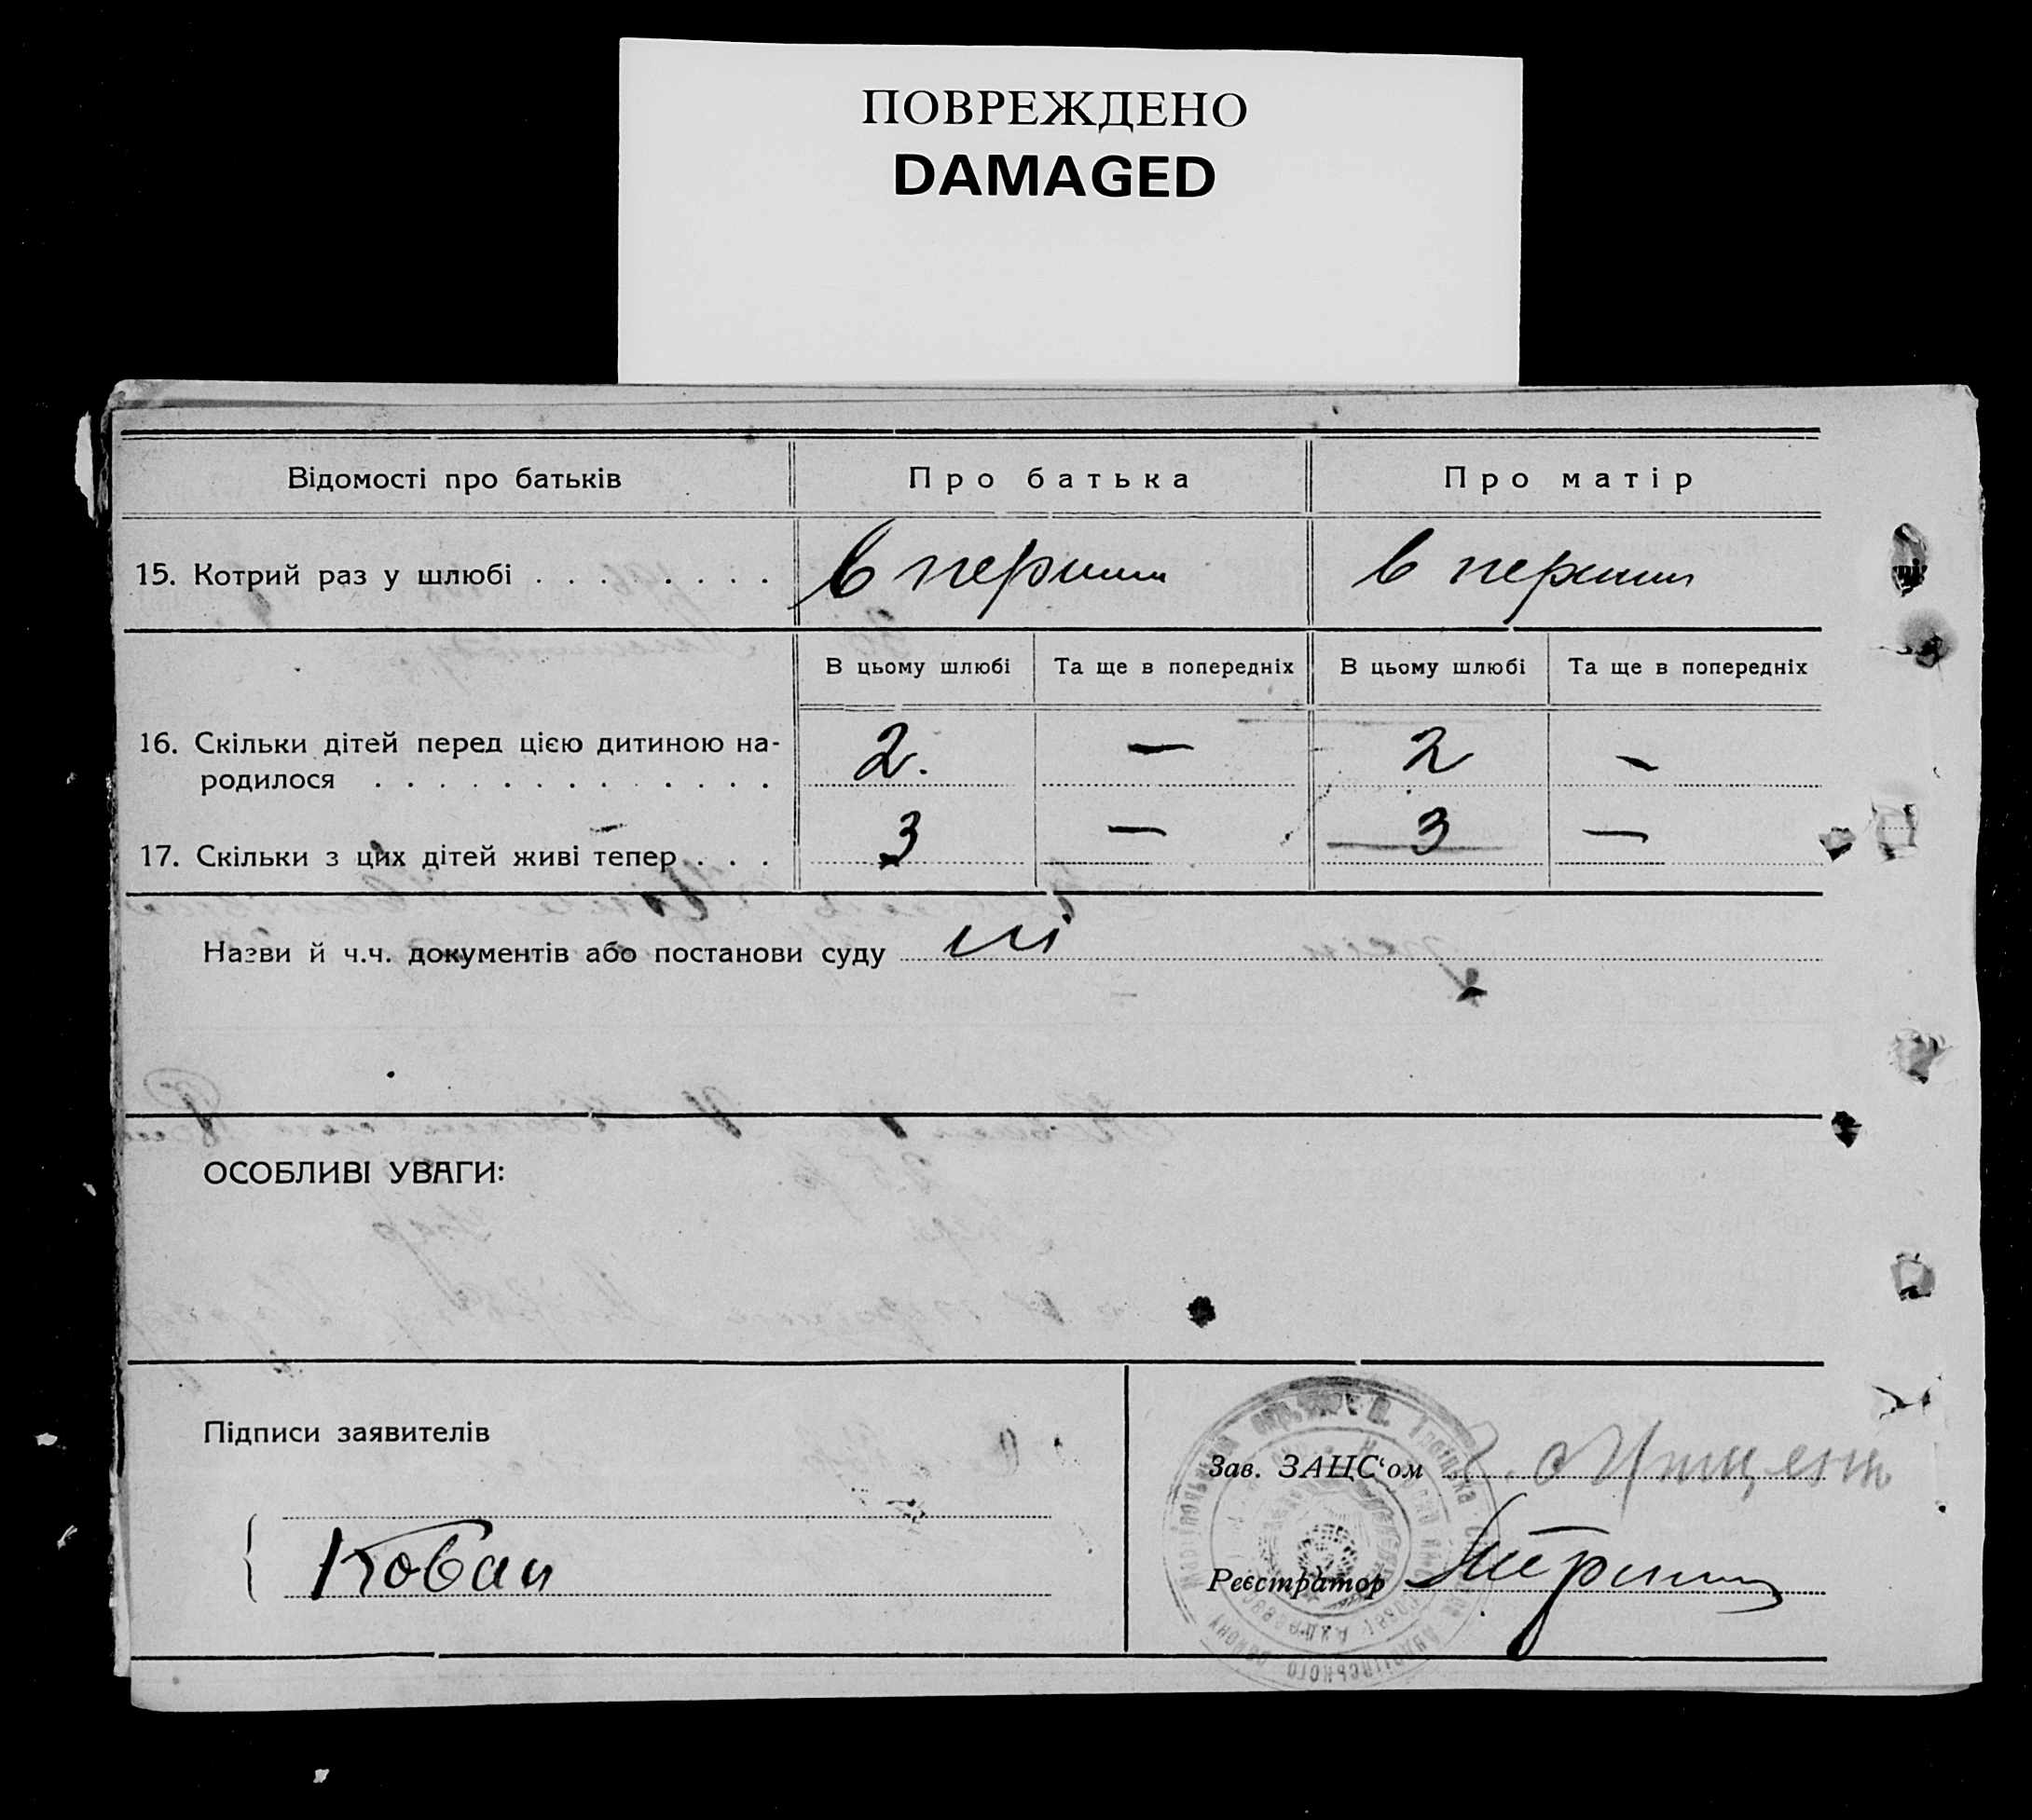 ПОВРЕЖДЕНО
DAMAGED
Відомості про батьків
Про батька
Про матір
15. Котрий раз у шлюбі . . . . . . . .
в перший
в перший
В цьому шлюбі
Та ще в попередніх
В цьому шлюбі
Та ще в попередніх
16. Скільки дітей перед цією дитиною на-
родилося . . . . . . . . . . . . .
2.
—
2
—
17. Скільки з цих дітей живі тепер . . .
3
—
3
—
Назви й ч.ч. документів або постанови суду
ОСОБЛИВІ УВАГИ:
Підписи заявителів
Зав. ЗАЦС‘ом
Реєстратор